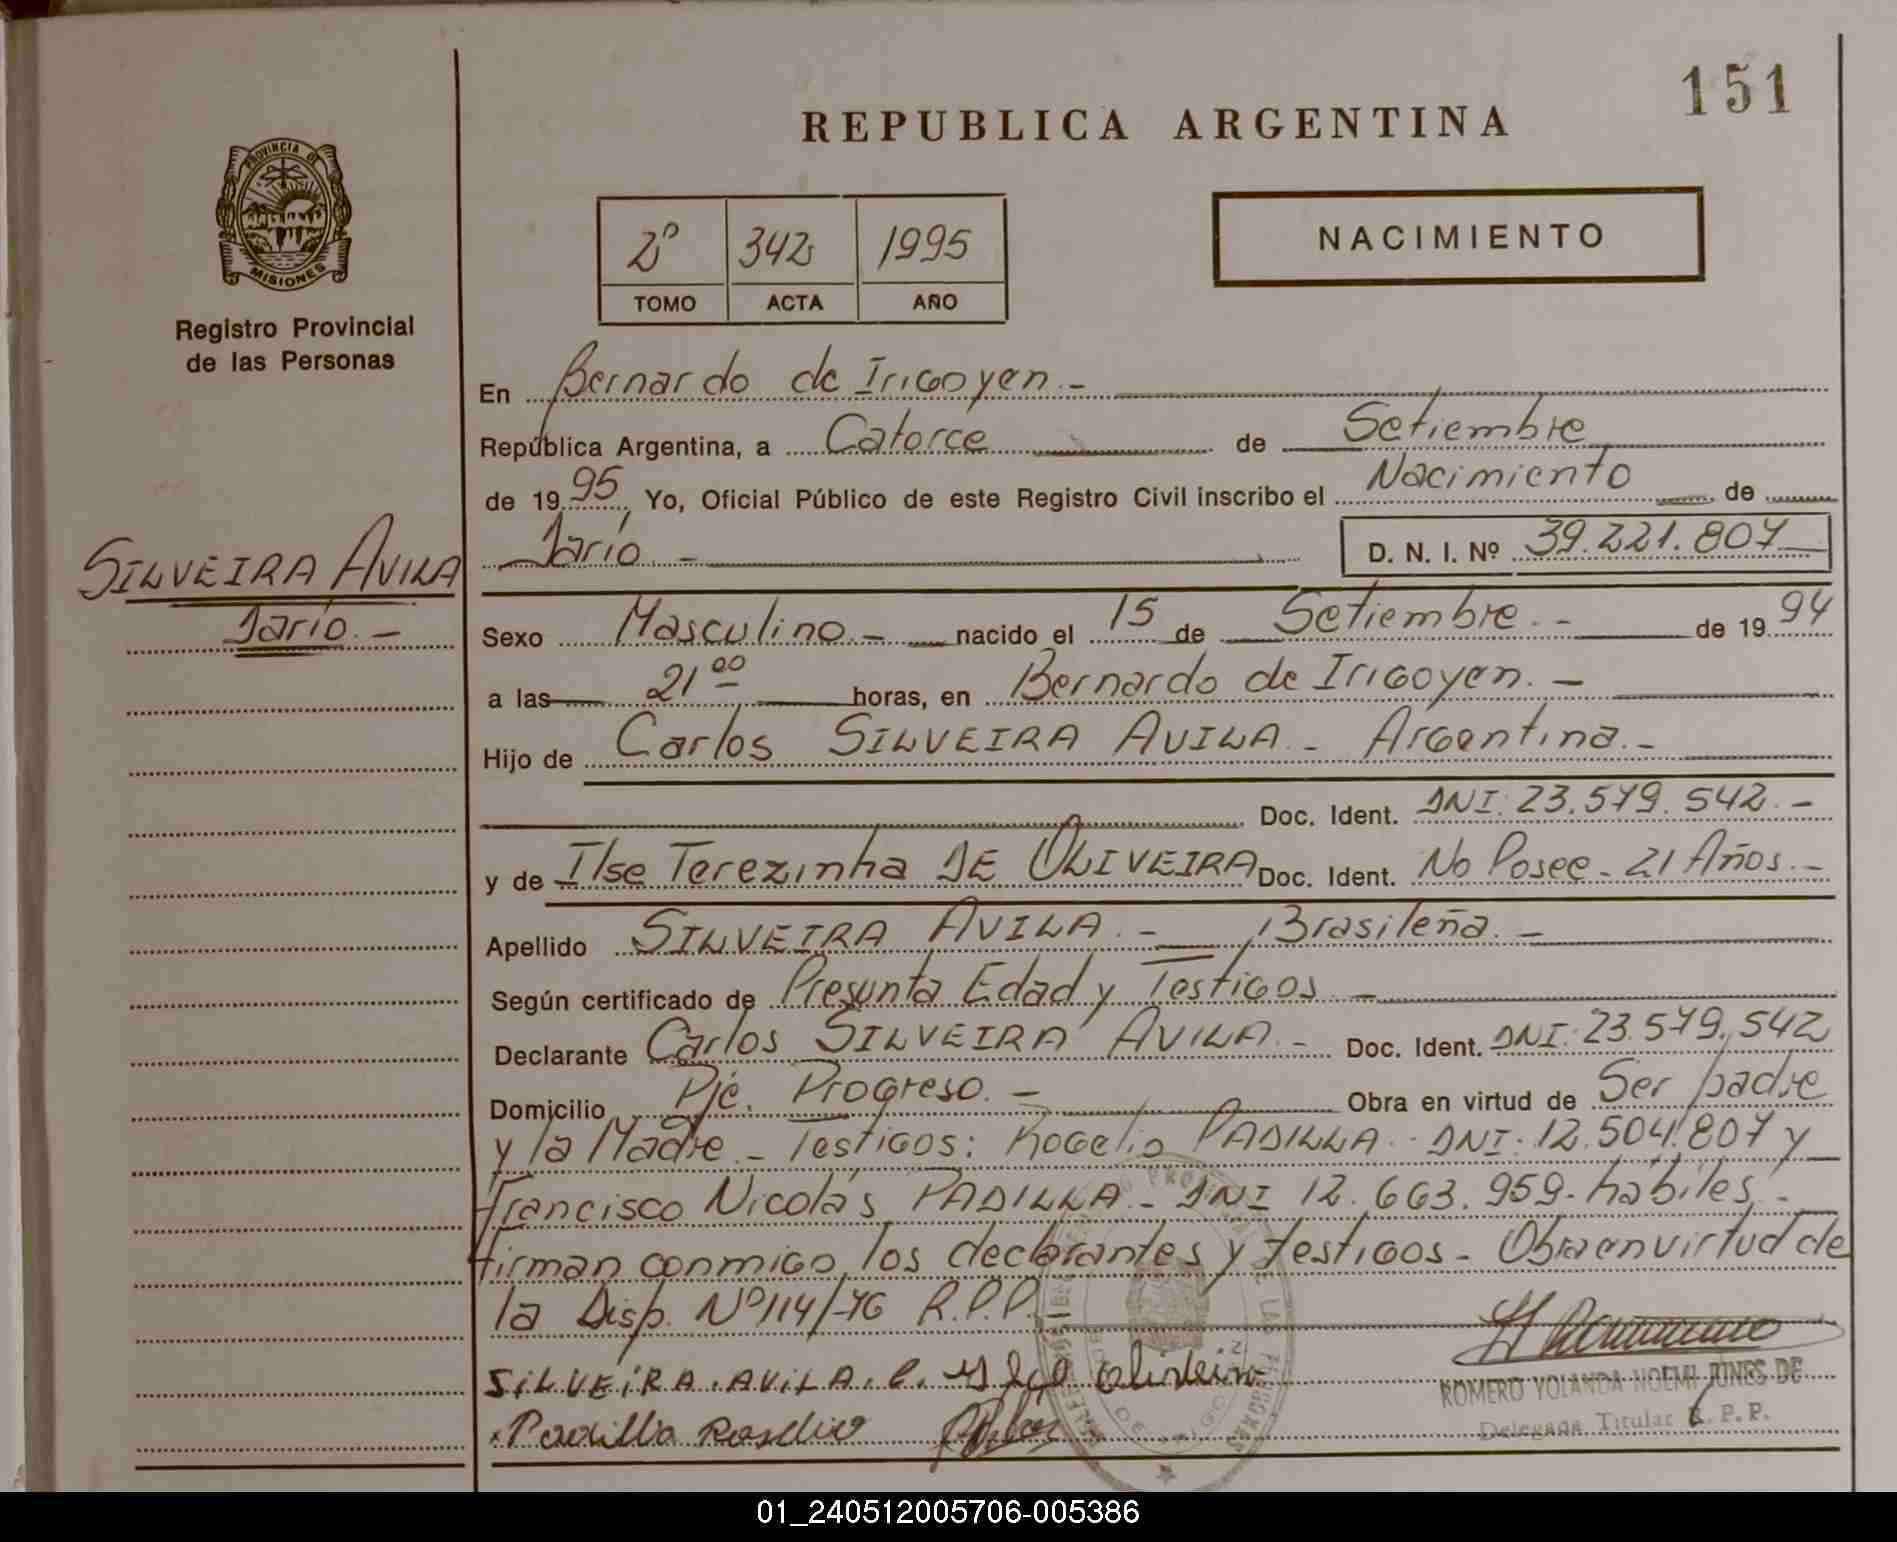 151
REPUBLICA ARGENTINA
PROVINCIA DE
MISIONES
Registro Provincial
de las Personas
2º 342 1995
TOMO ACTA AÑO
NACIMIENTO
En Bernardo de Irigoyen.-
República Argentina, a Catorce de Setiembre
de 1995, Yo, Oficial Público de este Registro Civil inscribo el Nacimiento de
Darío.- D. N. I. Nº 39.221.807
SILVEIRA AVILA
Darío.-
Sexo Masculino.- nacido el 15 de Setiembre.- de 1994
a las 21 00 horas, en Bernardo de Irigoyen.-
Hijo de Carlos SILVEIRA AVILA.- Argentina.-
Doc. Ident. DNI: 23.579.542.-
y de Ilse Terezinha DE OLIVEIRA Doc. Ident. No Posee - 21 Años.-
Apellido SILVEIRA AVILA.- Brasileña.-
Según certificado de Presunta Edad y Testigos.-
Declarante Carlos SILVEIRA AVILA.- Doc. Ident. DNI: 23.579.542
Domicilio Pje. Progreso.- Obra en virtud de Ser padre
y la Madre - Testigos: Rogelio PADILLA. DNI: 12.504.807 y
Francisco Nicolás PADILLA - DNI 12.663.959 - hábiles,
firman conmigo los declarantes y testigos - Obra en virtud de
la Disp. Nº 114/76 R.P.P.
SILVEIRA.AVILA.C.
Padilla Rogelio
ROMERO YOLANDA NOEMI JUNES DE
Delegada Titular R.P.P.
01_240512005706-005386